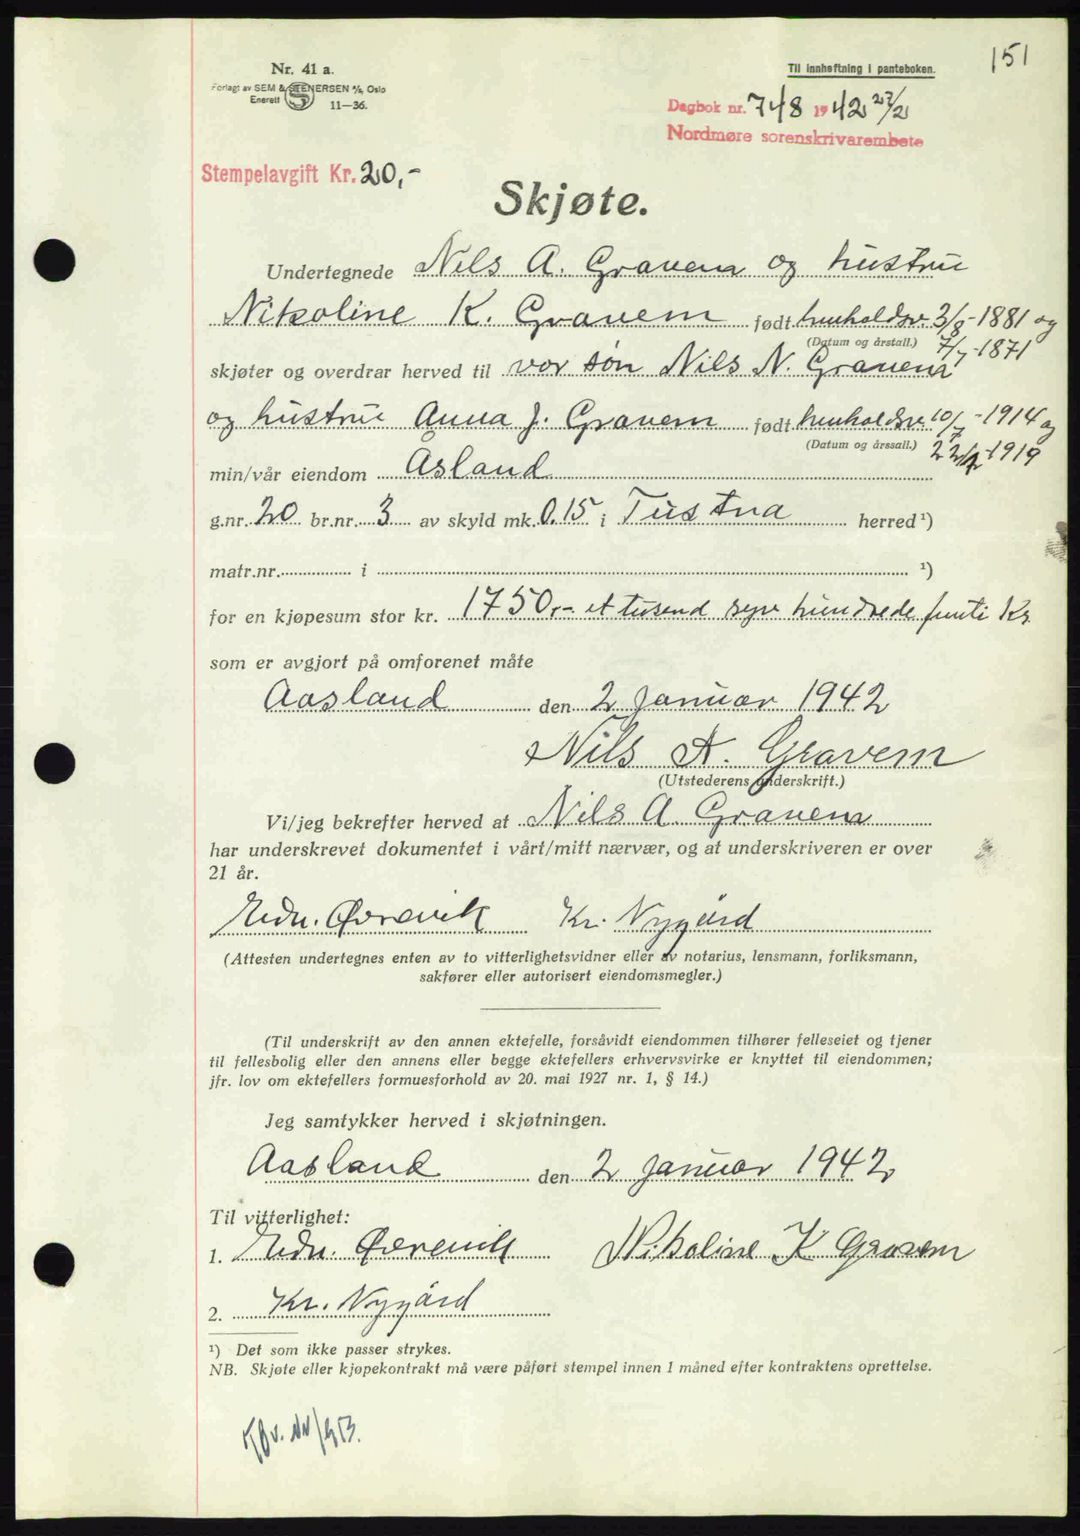 151
Nr. 41 a.
Forlagt av SEM & STENERSEN A/S, Oslo
Enerett S 11—36.
Til innheftning i panteboken.
Dagbok nr. 748 1942 27/2
Nordmøre sorenskrivarembete
Stempelavgift Kr. 20,-
Skjøte.
Undertegnede Nils A. Gravem og hustru
Nikoline K. Gravem født henholdsv. 3/8-1881 og
(Datum og årstall.) 7/7-1871
skjøter og overdrar herved til vor søn Nils N. Gravem
og hustru Anna J. Gravem født henholdsv. 10/7-1914 og
(Datum og årssall.) -1919
min/vår eiendom Åsland
g.nr. 20 br.nr. 3 av skyld mk. 0.15 i Tustna herred ¹)
matr.nr. i ¹)
for en kjøpesum stor kr. 1750,- et tusend syv hundrede femti Kr
som er avgjort på omforenet måte
Aasland den 2 januar 1942
Nils A. Gravem
(Utstederens underskrift.)
Vi/jeg bekrefter herved at Nils A. Gravem
har underskrevet dokumentet i vårt/mitt nærvær, og at underskriveren er over
21 år.
Edv. Ørevik Kr. Nygård
(Attesten undertegnes enten av to vitterlighetsvidner eller av notarius, lensmann, forliksmann,
sakfører eller autorisert eiendomsmegler.)
(Til underskrift av den annen ektefelle, forsåvidt eiendommen tilhører felleseiet og tjener
til fellesbolig eller den annens eller begge ektefellers erhvervsvirke er knyttet til eiendommen;
jfr. lov om ektefellers formuesforhold av 20. mai 1927 nr. 1, § 14.)
Jeg samtykker herved i skjøtningen.
Aasland den 2 januar 1942
Til vitterlighet:
1. Edv. Ørevik Nikoline K Gravem
2. Kr. Nygård
¹) Det som ikke passer strykes.
NB. Skjøte eller kjøpekontrakt må være påført stempel innen 1 måned efter kontraktens oprettelse.